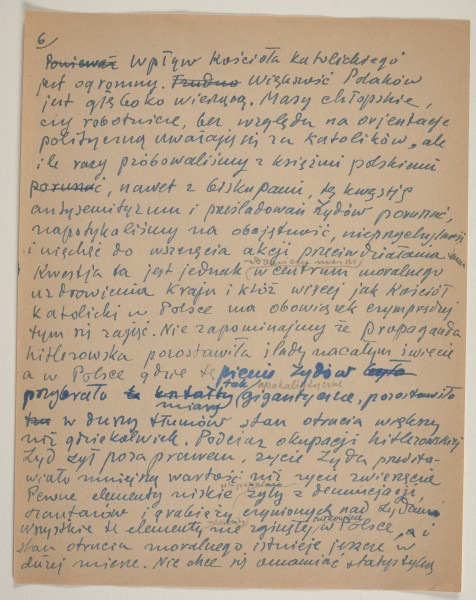 6/
Ponieważ Wpływ Kościoła Katolickiego
jest ogromny. Trudno Większość Polaków
jest głęboko wierzącą. Masy chłopskie,
czy robotnicze, bez względu na orjentację
polityczną uważają się za katolików, ale
ile razy próbowaliśmy z księżmi polskiemi
poruszać, nawet z biskupami, tę kwestję
antysemityzmu i prześladowań Żydów poruszać,
napotykaliśmy na obojętność, nieprzychylność
i niechęć do wszczęcia akcji przeciwdziałania
Kwestja ta jest jednak w centrum moralnego
uzdrowienia kraju i któż więcej jak Kościół
Katolicki w Polsce ma obowiązek
tym się zająć. Nie zapominajmy że propaganda
hitlerowska pozostawiła ślady na całym świecie
a w Polsce gdzie tępienie Żydów było
tak apokaliptyczne
przybrało kształty gigantyczne, pozostawiło
miary
w duszy tłumów stan otrucia większy
niż gdziekolwiek. Podczas okupacji hitlerowskiej
Żyd żył poza prawem, życie Żyda przedsta-
wiało mniejszą wartość niż życie zwierzęcia
Pewne elementy niskie żyły z denuncjacji,
szantażów i grabieży czynionych nad Żydami
wszystkie te elementy nie zginęły w Polsce, a i
stan otrucia moralnego istnieje jeszcze w
dużej mierze. Nie chcę się omamiać statystyką